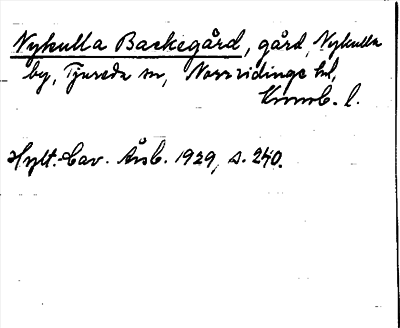 Nykulla Backegård, gård, Nykulla
by, Tjureda sn, Norrvidinge hd,
Kronob. l.
Hylt.-Cav. Årsb. 1929, s. 240.